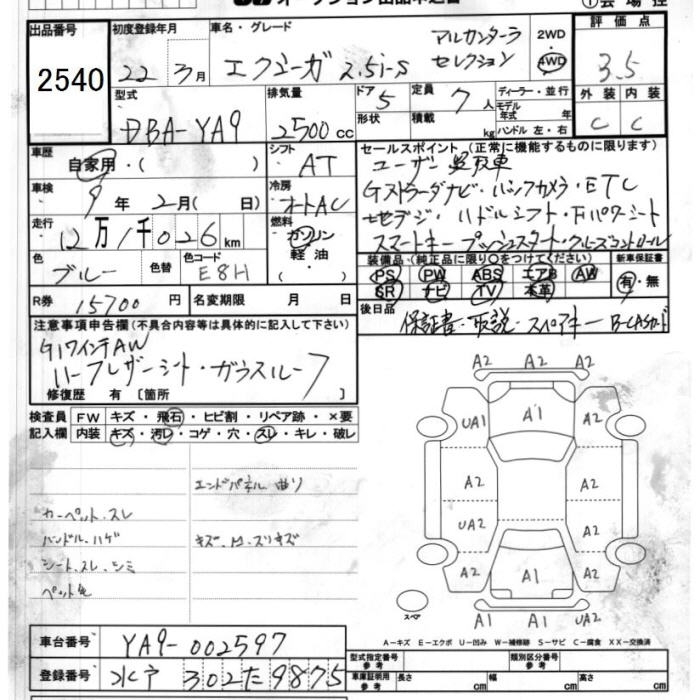 出品番号
2540
初度登録年月
22 3月
車名・グレード
エクシーガ 2.5i-S アルカンターラ
セレクション
2WD
4WD
評価点
3.5
外装 内装
C C
型式
DBA-YA9
排気量
2500 cc
ドア 5
形状
定員 7人
積載 kg
ディーラー・並行
モデル年式 年
ハンドル 左・右
車歴
自家用・( )
シフト
AT
車検
9年 2月( 日)
冷房
オートAC
走行
12万1千026km
燃料
ガソリン
軽油
( )
色
ブルー
色替
色コード
E8H
R券 15700円
名変期限 月 日
セールスポイント(正常に機能するものに限ります)
ユーザー買取車
Gストラーダナビ・バックカメラ・ETC
地デジ・パドルシフト・Fパワーシート
スマートキー プッシュスタート・クルーズコントロール
装備品(純正品に限り○をつけてください)
PS PW ABS エアB AW
SR ナビ TV 本革
新車保証書
有・無
後日品
保証書・取説・スペアキー B-CASカード
注意事項申告欄(不具合内容等は具体的に記入して下さい)
G17インチAW
ハーフレザーシート・ガラスルーフ
修復歴 有 [箇所 ]
検査員記入欄
FW キズ・飛石・ヒビ割・リペア跡・×要
内装 キズ・汚レ・コゲ・穴・スレ・キレ・破レ
エンドパネル 曲リ
カーペット.スレ
ハンドル.ハゲ
キズ.凹.スリキズ
シート.スレ.シミ
ペット毛
A2
A2 A2
UA1 A1 A2
A2 A2
UA2 A2
A2 A1 A2
A1 A1 UA2
スペア
A－キズ E－エクボ U－凹み W－補修跡 S－サビ C－腐食 XX－交換済
車台番号
YA9-002597
登録番号
水戸 302た9875
型式指定番号 参考
類別区分番号 参考
車庫証明用 参考
長さ cm
幅 cm
高さ cm